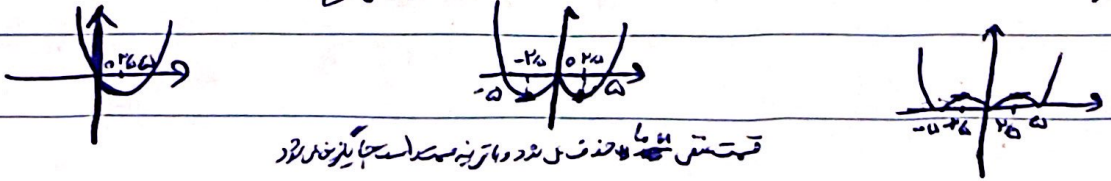 ۰ ۲٫۵ ۵
-۵ -۲٫۵ ۰ ۲٫۵ ۵
-۵ -۲٫۵ ۲٫۵ ۵
قسمت منفی ها حذف می شود و با قرینه سمت راست جایگزین می شود